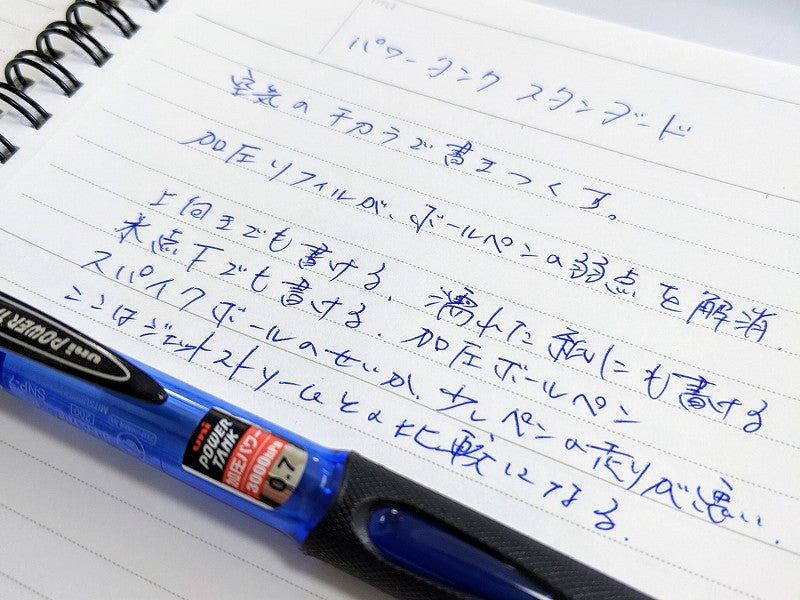 TITLE
パワータンク スタンダード
空気のチカラで書きつくす。
加圧リフィルが、ボールペンの弱点を解消.
上向きでも書ける. 濡れた紙にも書ける
氷点下でも書ける. 加圧ボールペン
スパイクボールのせいか、少しペンの走りが悪い.
ここはジェットストリームとの比較になる.
uni POWER TANK
SNP-7
uni
POWER
TANK
加圧パワー
3000hPa
0.7